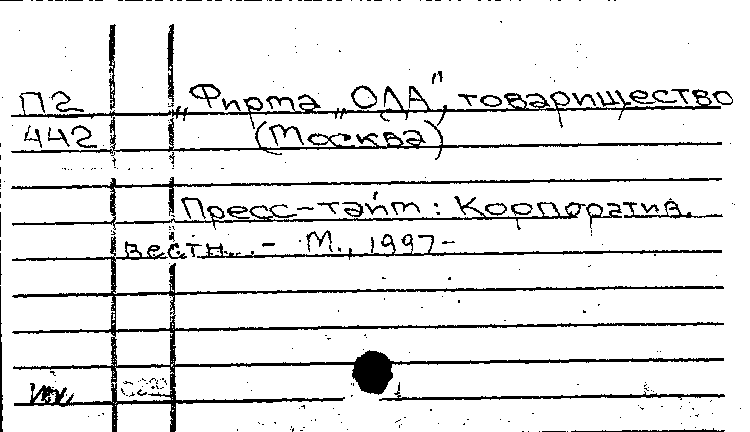 П2 „Фирма „ОДА”, товарищество
442 (Москва)
Пресс-тайм: Корпоратив.
вестн. - М., 1997-